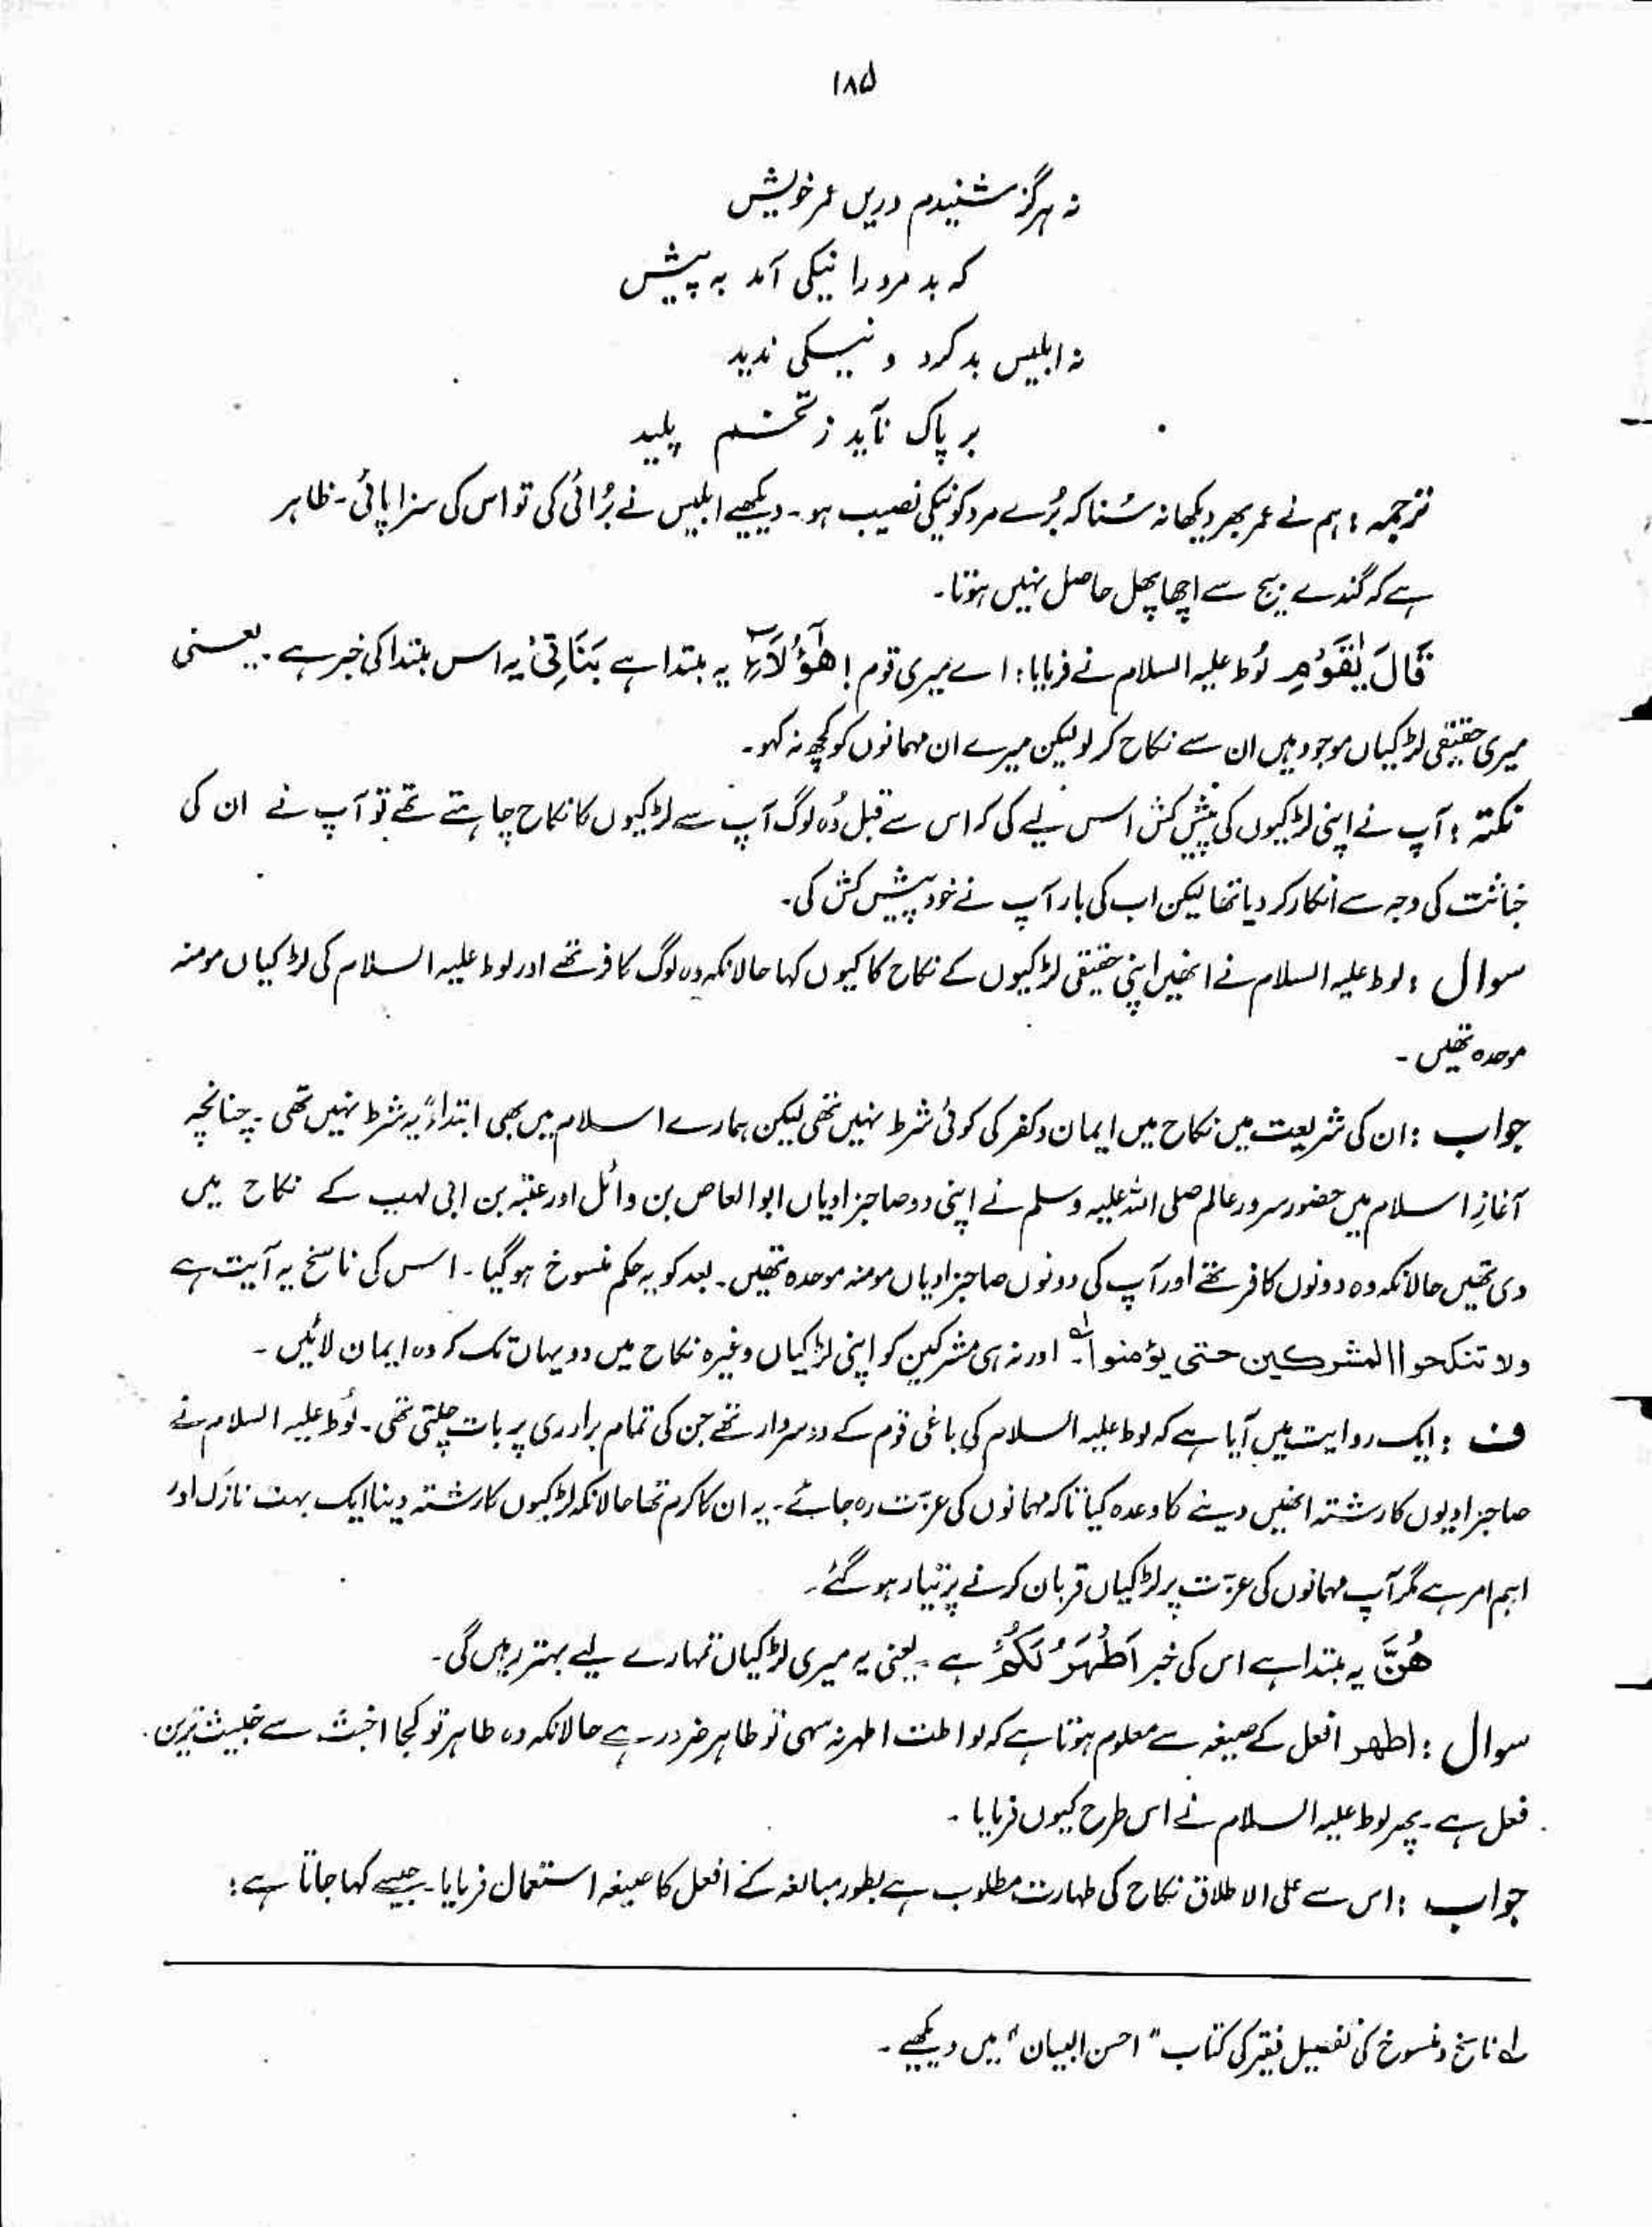 ۱۸۵
نہ ہرگز شنیدم دریں عمر خویش
کہ بد مرد را نیکی آمد بہ پیش
نہ ابلیس بد کرد و نیکی ندید
بر پاک نآید ز تخم پلید
ترجمہ : ہم نے عمر بھر دیکھا نہ سُنا کہ بُرے مرد کو نیکی نصیب ہو۔ دیکھیے ابلیس نے بُرائی کی تو اس کی سزا پائی۔ ظاہر
ہے کہ گندے بیج سے اچھا پھل حاصل نہیں ہوتا۔
قَالَ یٰقَوْمِ لُوط علیہ السلام نے فرمایا : اے میری قوم ! هٰٓؤُلَآءِ یہ مبتدا ہے بَنَاتِیْ یہ اس مبتدا کی خبر ہے۔ یعنی
میری حقیقی لڑکیاں موجود ہیں ان سے نکاح کر لو لیکن میرے ان مہمانوں کو کچھ نہ کہو۔
نکتہ : آپ نے اپنی لڑکیوں کی پیش کش اس لیے کی کہ اس سے قبل وُہ لوگ آپ سے لڑکیوں کا نکاح چاہتے تھے تو آپ نے ان کی
خباثت کی وجہ سے انکار کر دیا تھا لیکن اب کی بار آپ نے خود پیش کش کی۔
سوال : لوط علیہ السلام نے انھیں اپنی حقیقی لڑکیوں کے نکاح کا کیوں کہا حالانکہ وہ لوگ کافر تھے اور لوط علیہ السلام کی لڑکیاں مومنہ
موحدہ تھیں ۔
جواب : ان کی شریعت میں نکاح میں ایمان و کفر کی کوئی شرط نہیں تھی لیکن ہمارے اسلام میں بھی ابتداءً یہ شرط نہیں تھی ۔ چنانچہ
آغازِ اسلام میں حضور سرور عالم صلی اللہ علیہ وسلم نے اپنی دو صاحبزادیاں ابوالعاص بن وائل اور عتبہ بن ابی لہب کے نکاح میں
دی تھیں حالانکہ وہ دونوں کافر تھے اور آپ کی دونوں صاحبزادیاں مومنہ موحدہ تھیں ۔ بعد کو یہ حکم منسوخ ہو گیا ۔ اس کی ناسخ یہ آیت ہے
ولا تنكحوا المشركين حتى يؤمنوا ۔ لہ اور نہ ہی مشرکین کو اپنی لڑکیاں وغیرہ نکاح میں دو یہاں تک کہ وہ ایمان لائیں ۔
ف : ایک روایت میں آیا ہے کہ لوط علیہ السلام کی باغی قوم کے دو سردار تھے جن کی تمام برادری پر بات چلتی تھی ۔ لُوط علیہ السلام نے
صاحبزادیوں کا رشتہ انھیں دینے کا وعدہ کیا تاکہ مہمانوں کی عزّت رہ جائے ۔ یہ ان کا کرم تھا حالانکہ لڑکیوں کا رشتہ دینا ایک بہت نازک اور
اہم امر ہے مگر آپ مہمانوں کی عزّت پر لڑکیاں قربان کرنے پر تیار ہو گئے ۔
هُنَّ یہ مبتدا ہے اس کی خبر اَطْهَرُ لَكُمْ ہے ۔ یعنی یہ میری لڑکیاں تمہارے لیے بہتر رہیں گی ۔
سوال : اطہر افعل کے صیغہ سے معلوم ہوتا ہے کہ لواطت اطہر نہ سہی تو طاہر ضرور ہے حالانکہ وہ طاہر تو کجا اخبث سے خبیث ترین
فعل ہے ۔ پھر لوط علیہ السلام نے اس طرح کیوں فرمایا ۔
جواب : اس سے علی الاطلاق نکاح کی طہارت مطلوب ہے بطور مبالغہ کے افعل کا صیغہ استعمال فرمایا ۔ جیسے کہا جاتا ہے :
لہ ناسخ و منسوخ کی تفصیل فقیر کی کتاب " احسن البیان " میں دیکھیے ۔